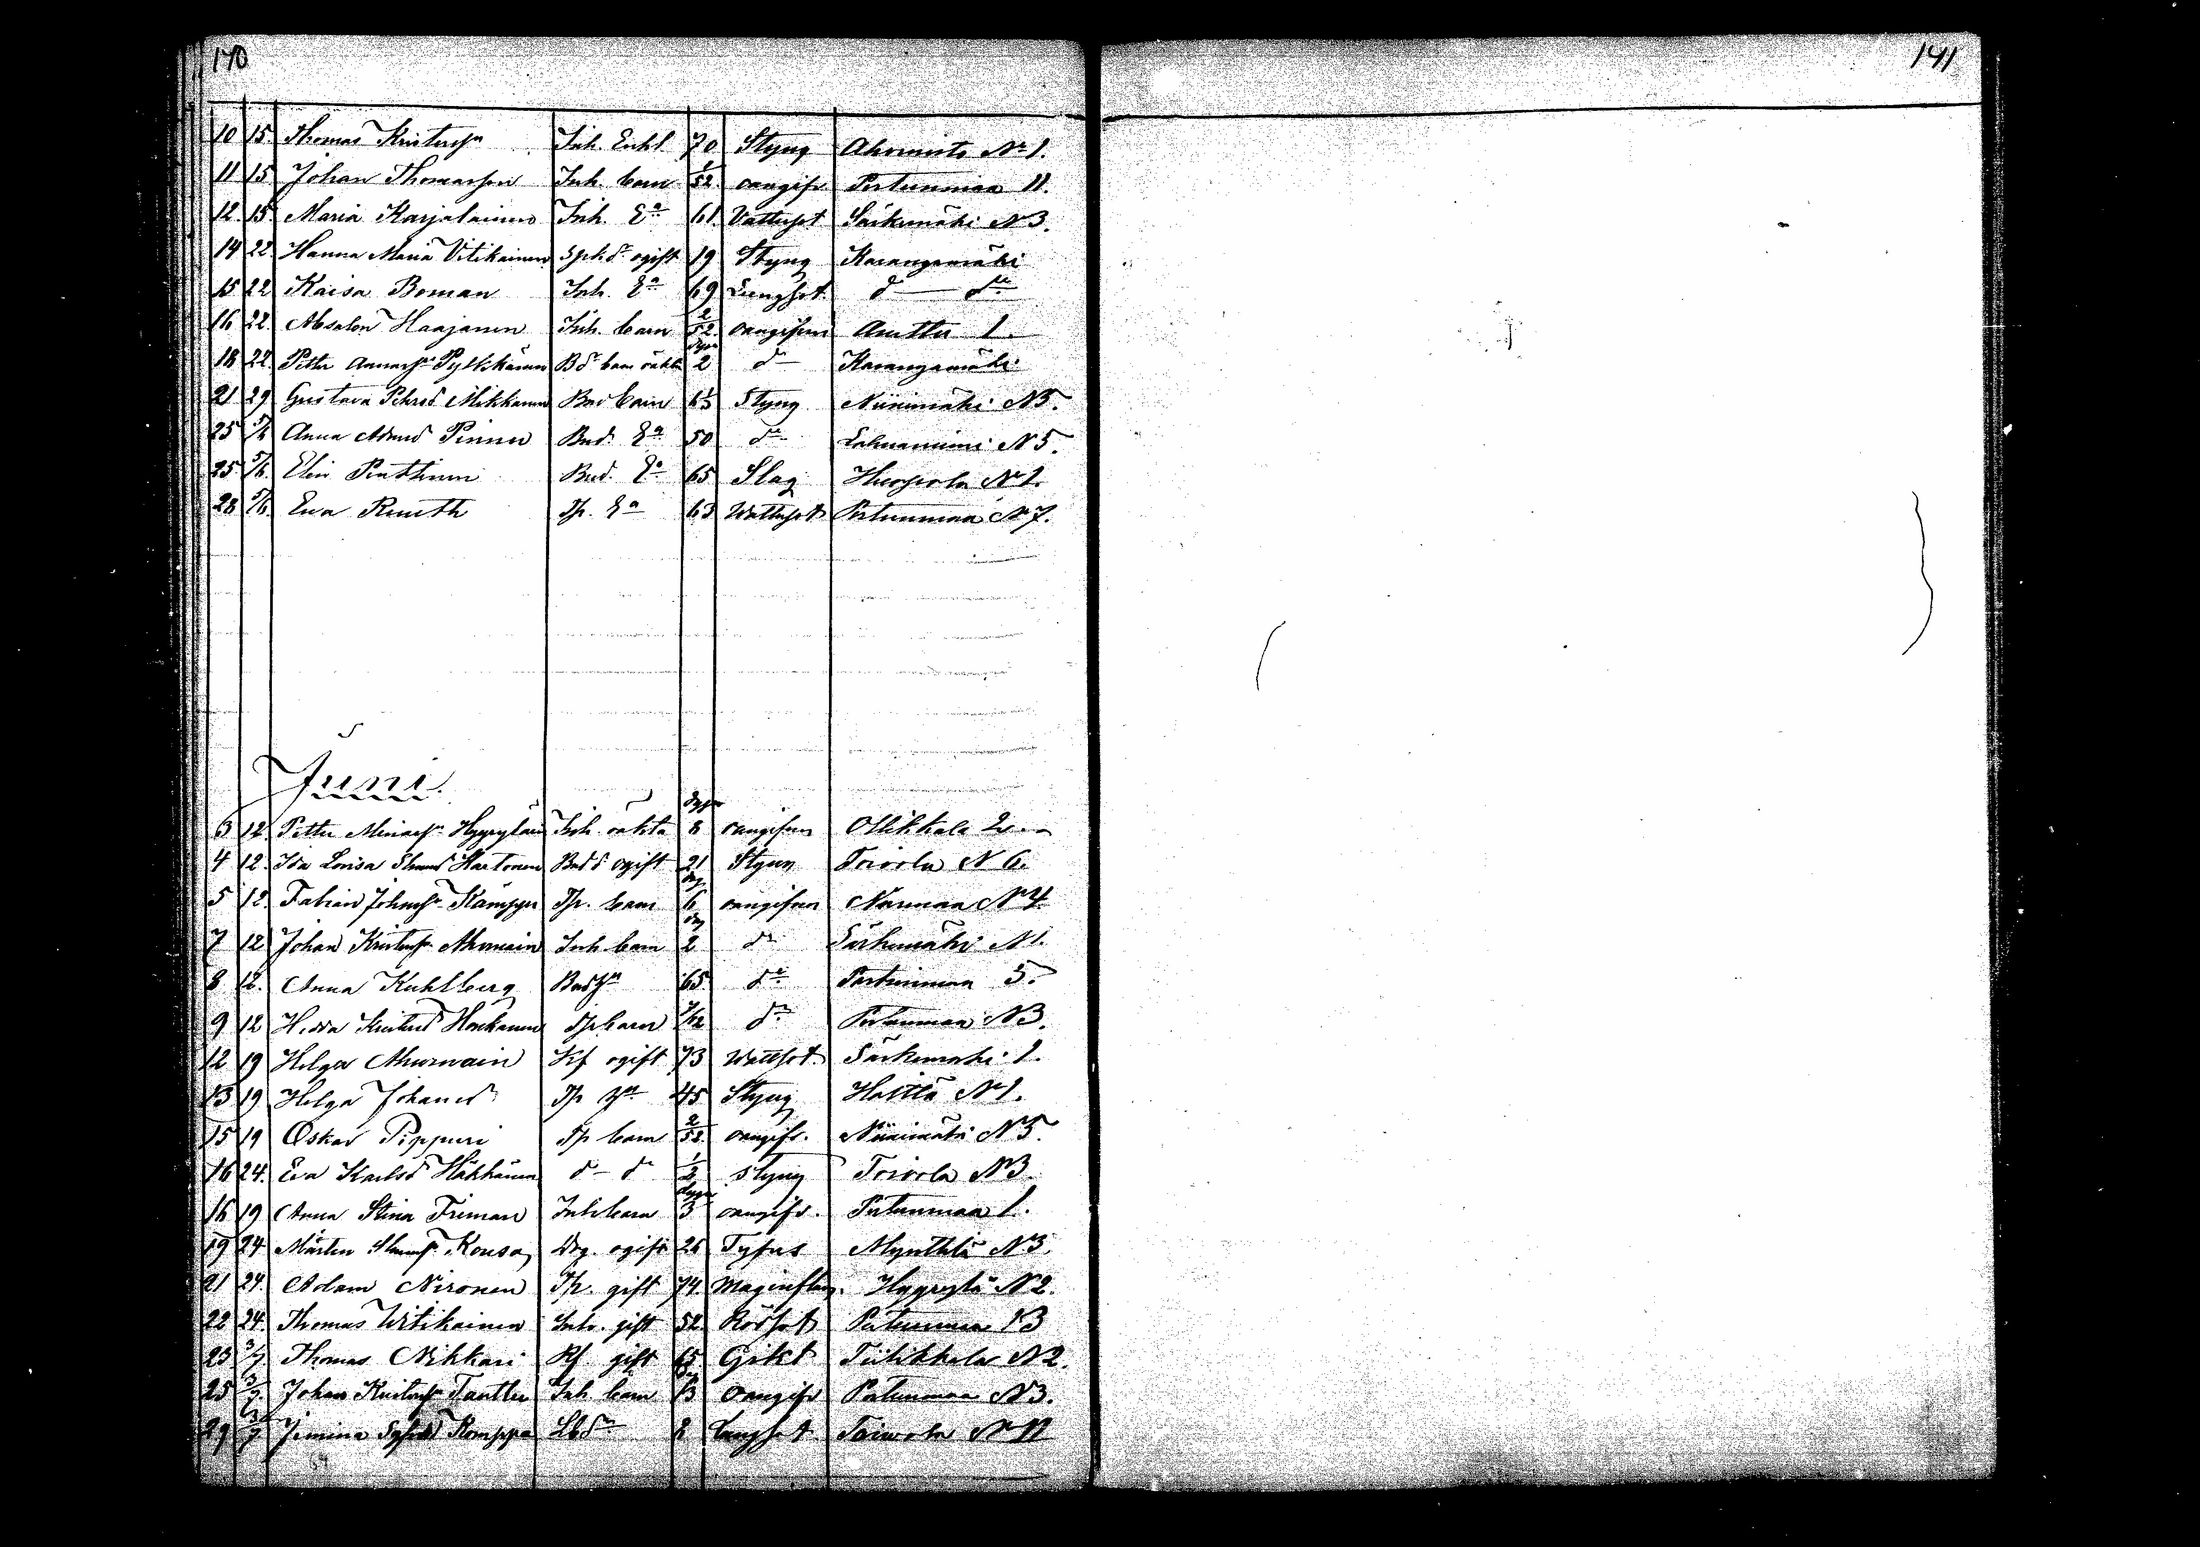 140
141
10 15. Thomas Kristerss:n Inh. Enkl. 70 Styng Ahvenisto N:o 1.
11 15 Johan Thomasson Inh. barn 1/52. oangifv Pertunmaa 11.
12. 15. Maria Karjalainen Inh. E:a 61. Vattusot Särkimäki N 3.
14 22. Hanna Maria Vitikainen ogift 19 Styng Karangamäki
15 22 Kaisa Boman Inh. E:a 69 Lungsot. d:o d:o
16 22. Absalon Haajanen Inh. barn 2/52. oangifven 1.
18 22. Petter Pylkkänen Bd:r barn oäkta dygn 2 d:o Karangamäki
21 29 Gustava Petersd Mikkanen Bondbarn Styng Niinimäki N 5.
25 5/6 Anna Adamsd Pinnu Bnd. E:a 50 d:o N 5.
25 5/6. Elin Bnd. E:a 65 Slag Kuorsola N:o 1.
28 5/6. Eva Reuth Tp. E:a 63 Wattusot Pertunmaa N:o 7.
Juni.
3 12. Petter Hyyryläin Inh. oäkta dygn 8 oangifven Ollikkala 2
4 12. Ida Lovisa Hartonen Bnd d ogift 21 Styng Toivola N 6.
5 12. Fabian Johnss:n Kämppi Tp. barn dag 6 oangifven Nurmaa N:o 4
7 12 Johan Kristerss:n Ahvenain Inh. barn dag 2 d:o Särkimäki N 1.
8 12. Anna Kuhlberg Bnd 65. d:o Pertunmaa 5.
9 12 Hedda Kristersd Honkanen Tp barn d:o Pertunmaa N 3.
12 19 Helga Ahvenain Kf ogift 73 Wattsot. Särkimäki 1.
13 19 Helga Johansd Tp 45 Styng Hattla N:o 1.
15 19 Oskar Pippuri Tp barn 2/52. oangifv. Niinimäki N:o 5.
16 24. Eva Karlsd Häkkänen d:o d:o 1/2 Styng Toivola N:o 3.
16 19 Anna Stina Friman Inh barn dygn 3 oangifv. Pertunmaa 1.
19 24 Mårten Kousa, Drg. ogift 26 Tyfus Mynttilä N:o 3.
21 24. Adam Nironen Tp. gift 74. Maginflam. Hyyrylä N:o 2.
22 24. Thomas Witikainen Inh. gift 52. Rödsot Pertunmaa 13
23 3/7 Thomas Nikkari Kf gift 65 Gikt Tiilikkala N 2.
25 3/7. Johan Kristerss:n Tanttu Inh. barn oangifv Pertunmaa N 3.
29 3/7 Jemina Komppa 2 Lungsot Toivola N:o 12